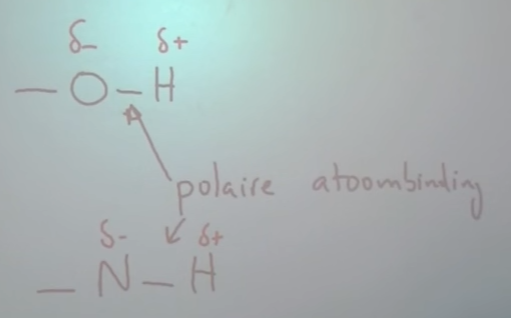 δ- δ+
— O — H
polaire atoombinding
δ- δ+
— N — H